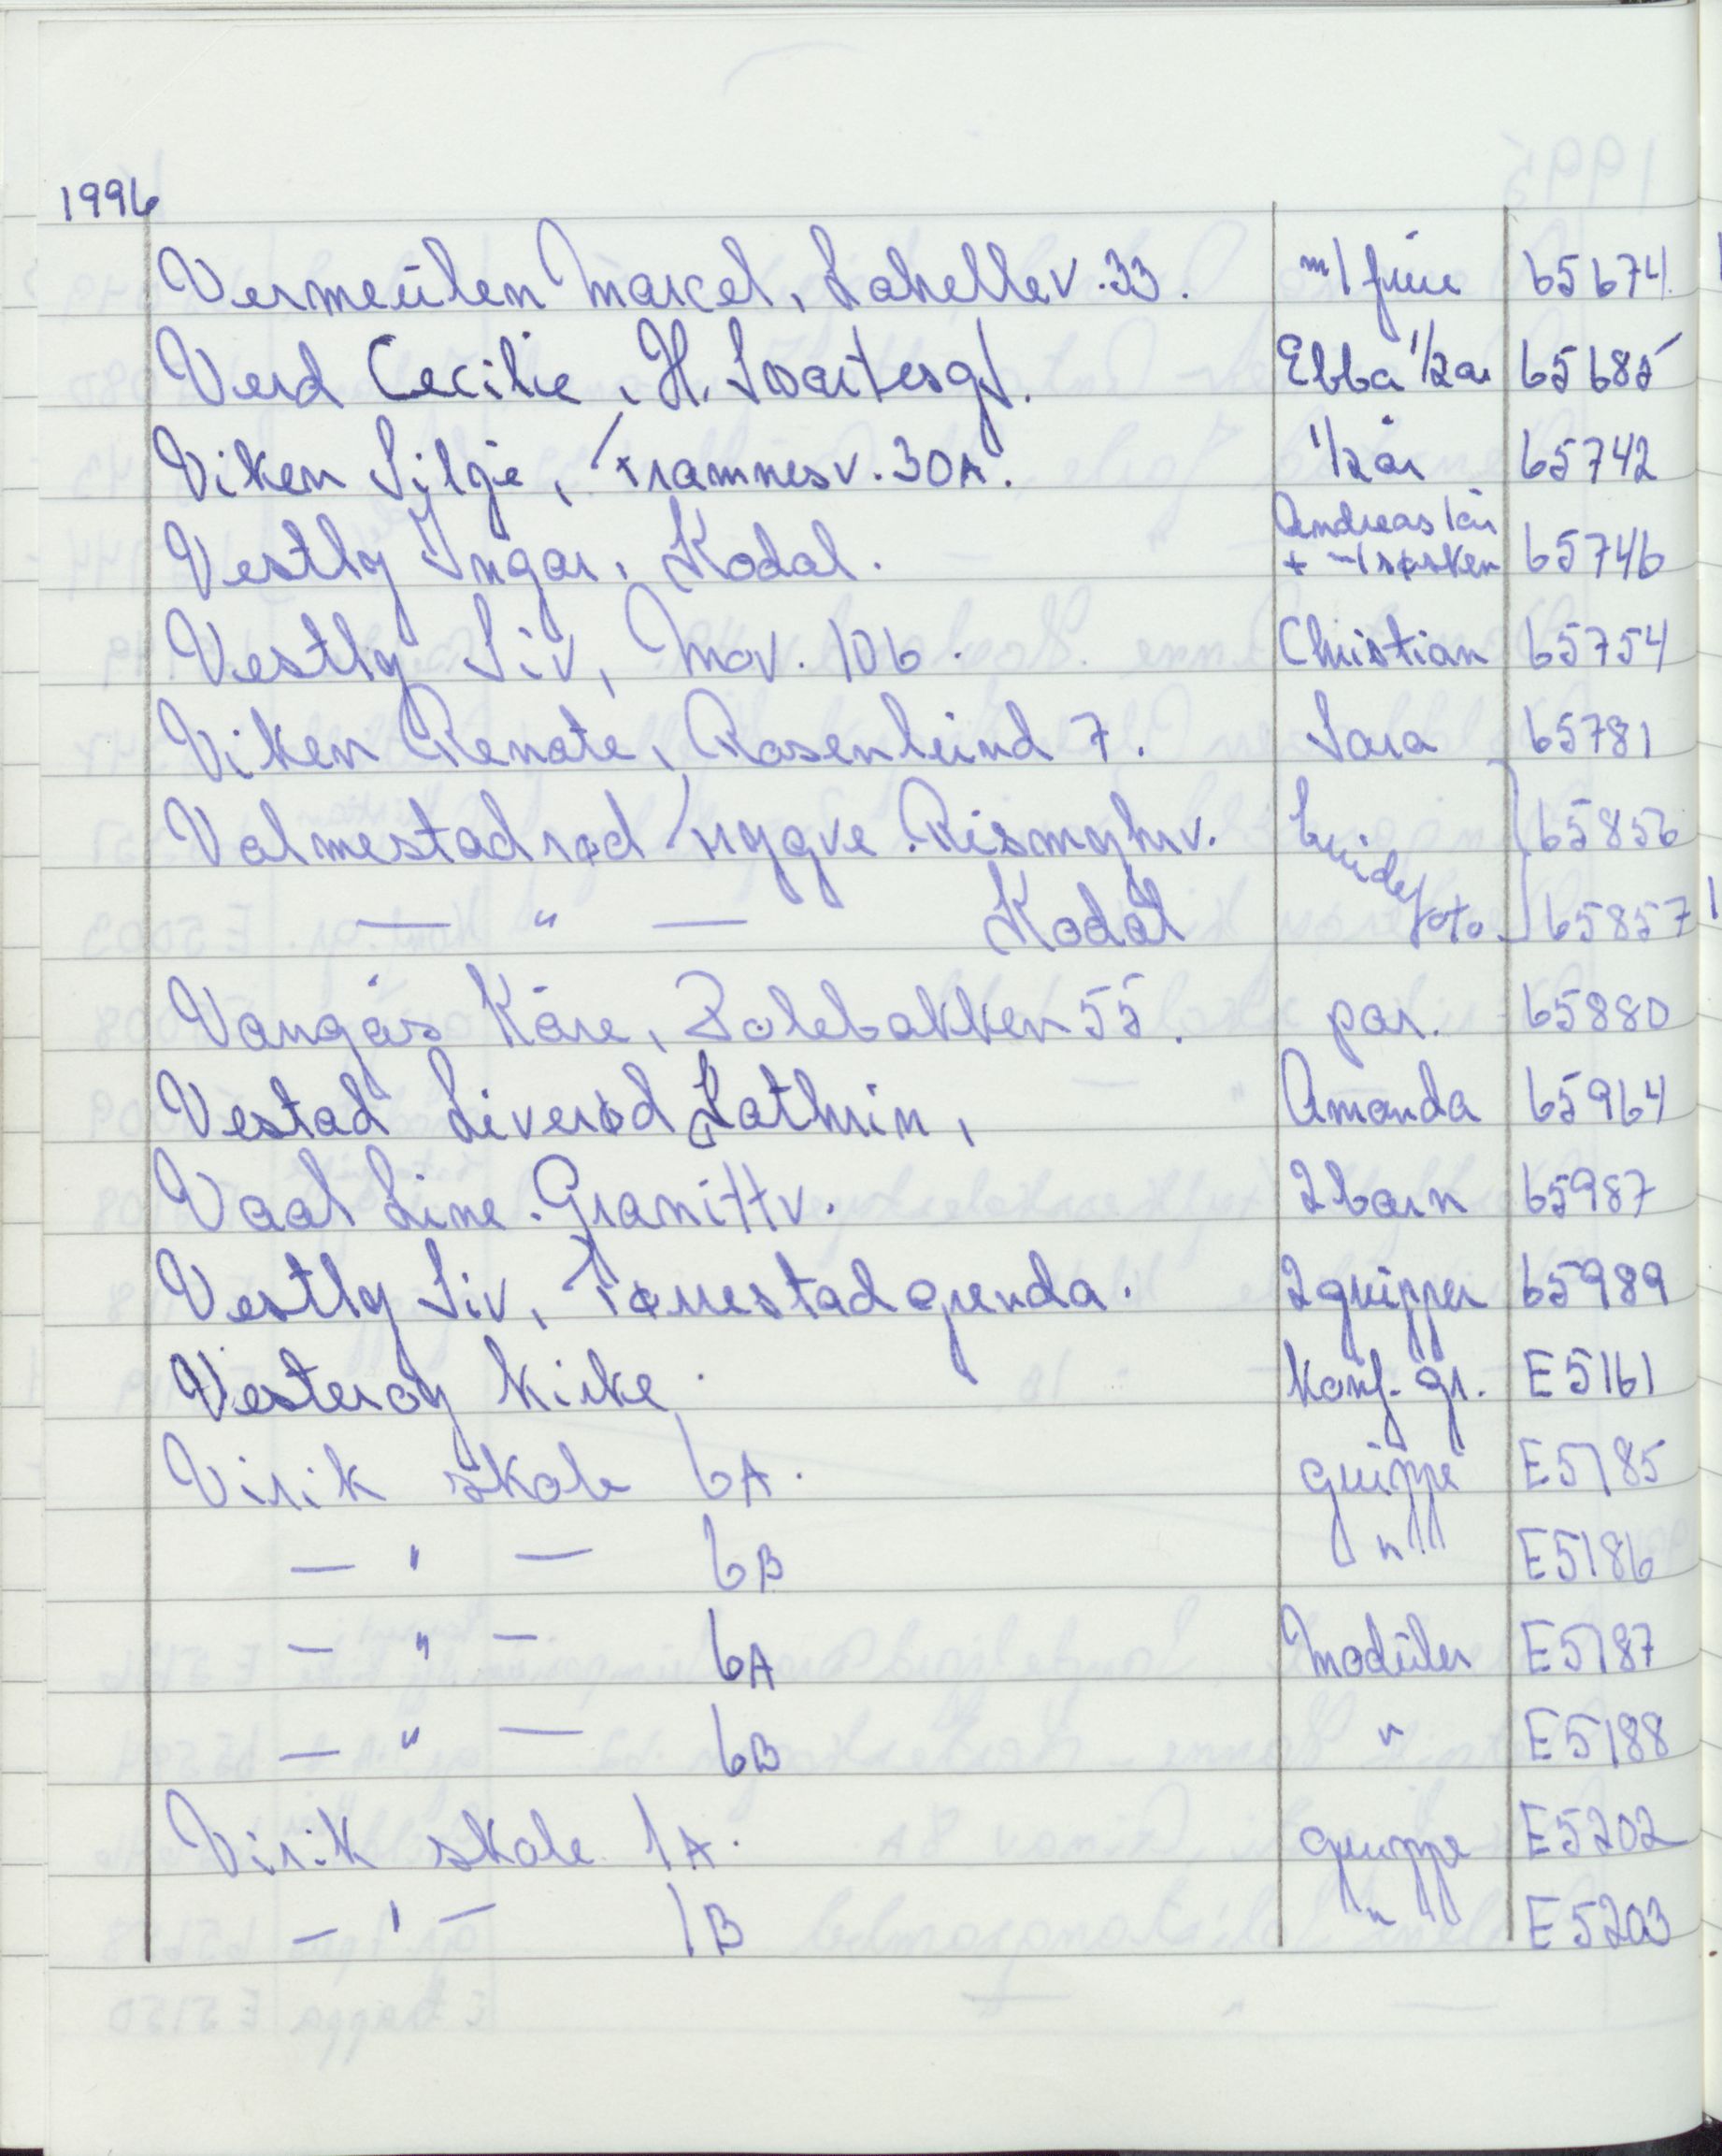 1996
Vermeulen Marcel, Lahellev. 33. m/ frue 65674
Verd Cecilie, H. Svartesgt. Ebba 1/2 år 65685
Viken Silje, Framnesv. 30A. 1/2 år 65742
Vestly Yngar, Kodal. Andreas 1 år + m/søsken 65746
Vestly Siv, Mov. 106. Christian 65754
Viken Renate, Rosenlund 7. Sara 65781
Valmestadrød Trygve. Rismyhrv. brude 65856
— " — Kodal foto 65857
Vangås Kåre, Bolebakken 55. par. 65880
Vestad Liverød Kathrin, Amanda 65964
Vaal Line. Granittv. 2 barn 65987
Vestly Siv, Tørrestadgrenda. 2 grupper 65989
Vesterøy kirke. konf. gr. E5161
Virik skole 6A. gruppe E5185
— " — 6B " E5186
— " — 6A Moduler E5187
— " — 6B " E5188
Virik skole 1A. gruppe E5202
— " — 1B " E5203